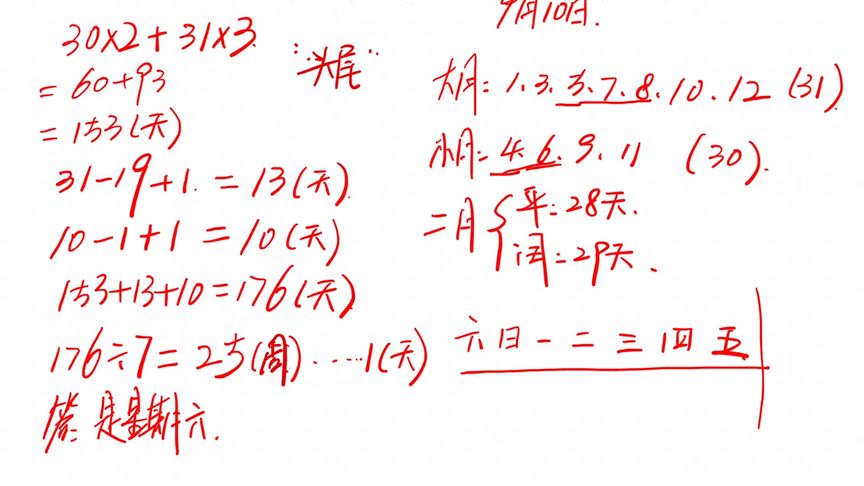 30×2+31×3
=60+93
=153(天)
31-19+1.=13(天)
10-1+1=10(天)
153+13+10=176(天)
176÷7=25(周)·····1(天)
答:是星期六.
"头尾"
9月10日.
大月:1.3.5.7.8.10.12 (31)
小月:4.6.9.11 (30).
二月{平:28天.
闰:29天.
六日一二三四五